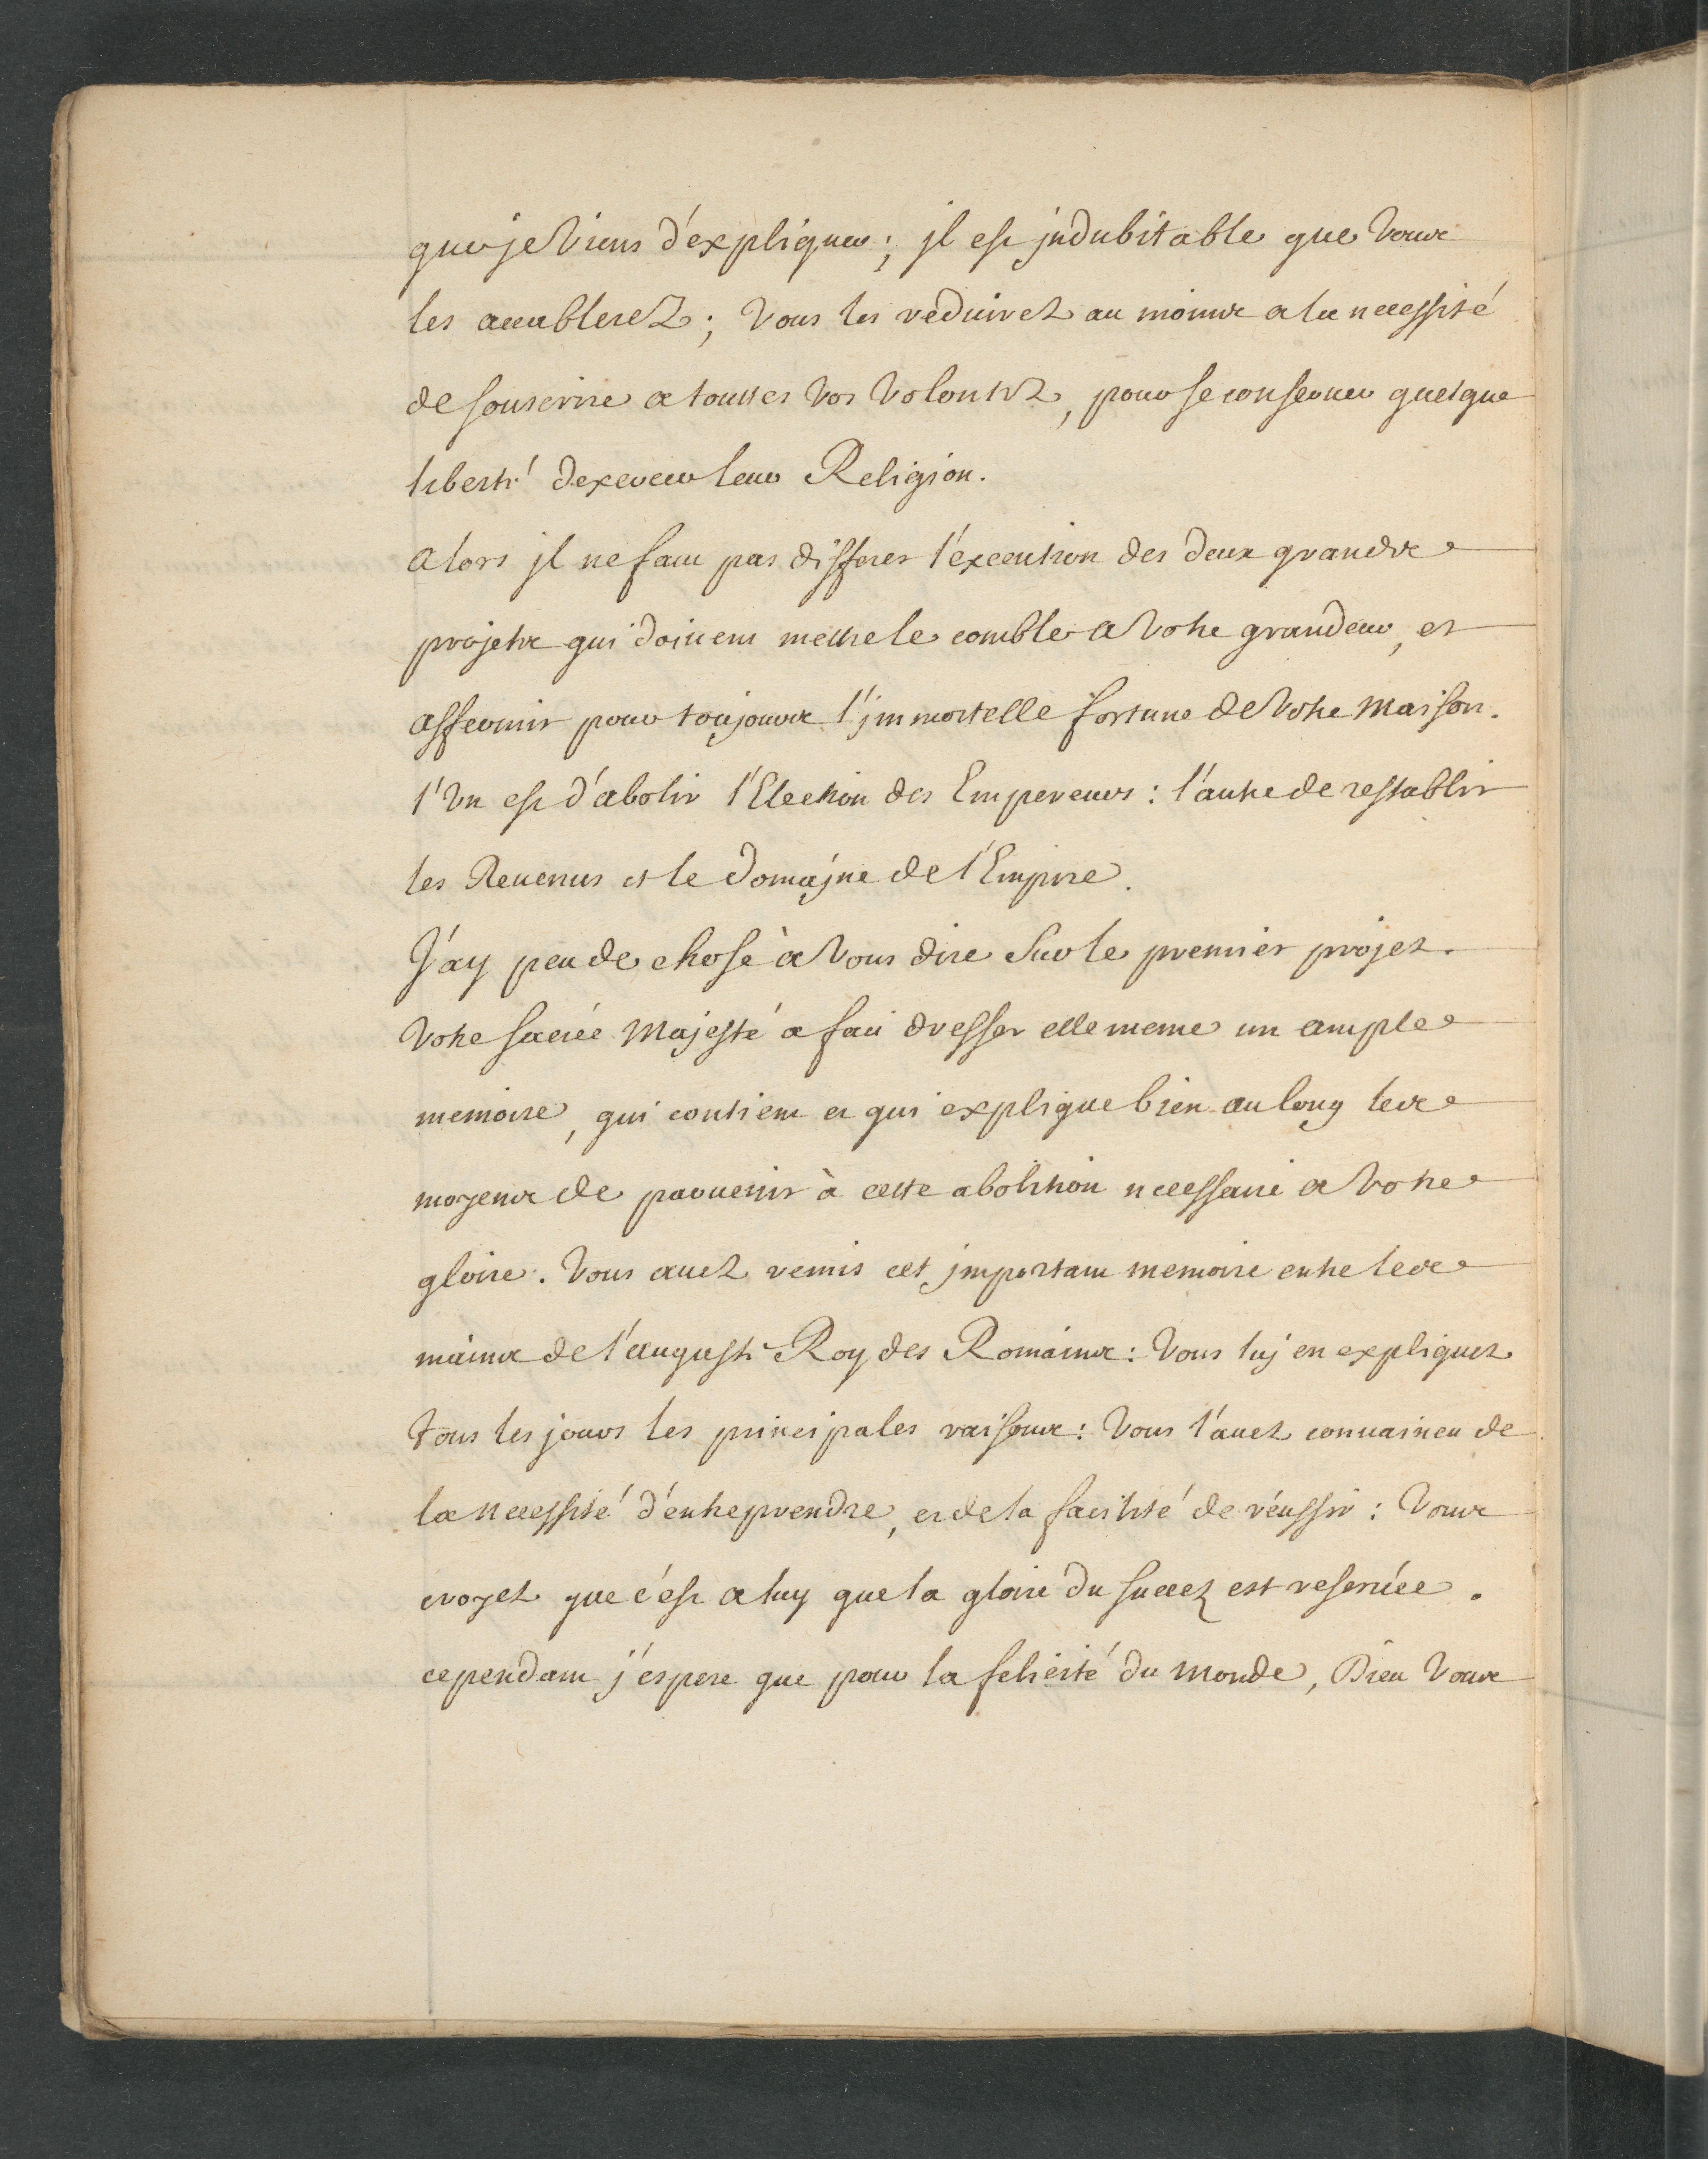 que je Viens d'expliquer; jl est jndubitable que Vous
les accablerez; Vous les reduirez au moins a la necessité
de souscrire a touttes Vos Volontez, pour se conseruer quelque
liberté dexercer leur Religion.
Alors jl ne faut pas differer l'execution des deux grands
projets qui doiuent mettre le comble a Votre grandeur, et
affermir pour toujours l'jmmortelle fortune de Votre Maison.
l'Vn est d'abolir l'Election des Empereurs: l'autre de restablir
les Reuenus et le Domajne de l'Empire.
J'ay peu de chose à Vous dire Sur le premier projet.
Votre Sacrée Majesté a fait dresser elle meme un ample
memoire, qui contient et qui explique bien au long les
moyens de paruenir à cette abolition necessaire a Votre
gloire. Vous auez remis cet jmportant memoire entre les
mains de l'auguste Roy des Romains: Vous luj en expliquez
tous les jours les principales raisons: Vous l'auez conuaincu de
la Necessité d'entreprendre, et de la facilité de réussir: Vous
croyez que c'est a luy que la gloire du succez est reseruée.
cependant j'espere que pour la felicité du Monde, Dieu Vous